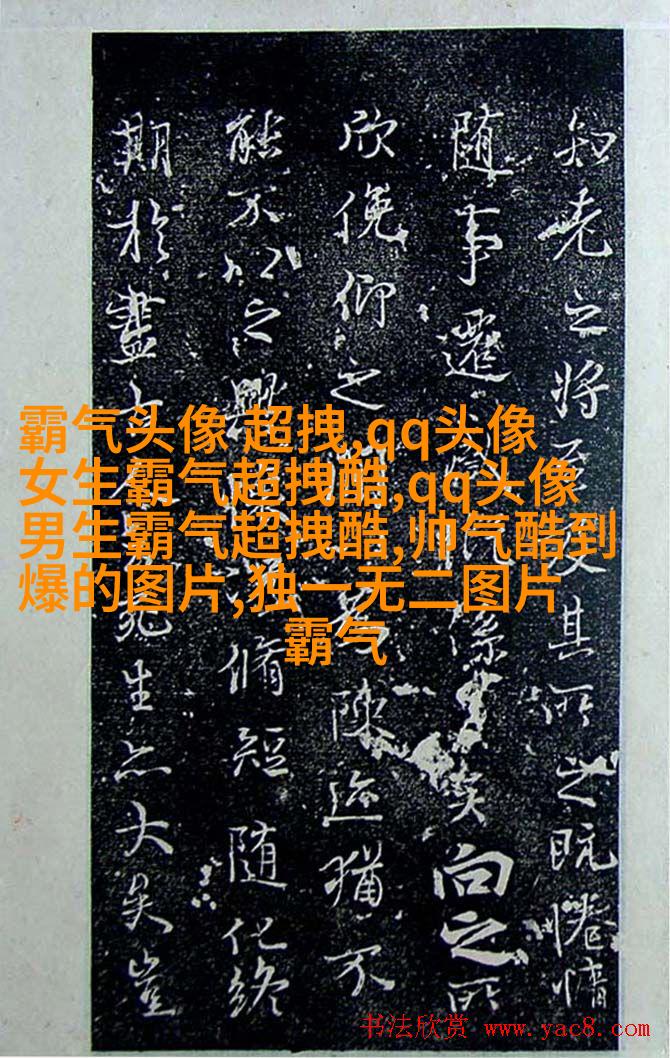 霸气头像 超拽,qq头像
女生霸气超拽酷,qq头像
男生霸气超拽酷,帅气酷到
爆的图片,独一无二图片
霸气
知老之将至及其所之既惓情
随事遷感慨係之矣向之所
欣俛仰之為陳迹猶不
能不以之興懷脩短随化終
期於盡古死生亦大矣豈
书法欣赏 www.yac8.com